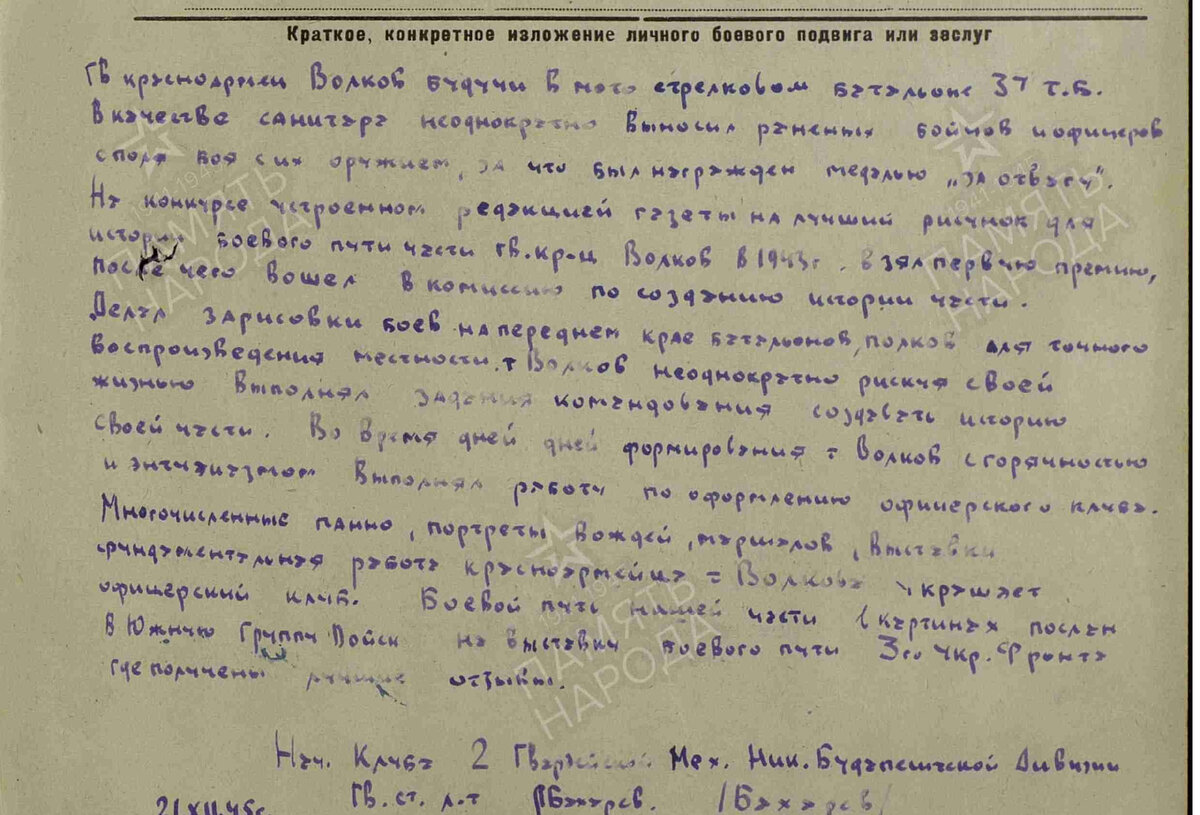 Краткое, конкретное изложение личного боевого подвига или заслуг
Гв красноармеец Волков будучи в мото стрелковом батальоне 37 т.б.
В качестве санитара неоднократно выносил раненных бойцов и офицеров
с поля боя с их оружием, за что был награжден медалью „За отвагу".
На конкурсе устроенном редакцией газеты на лучший рисунок для
истории боевого пути части гв. кр-ц Волков в 1943г. взял первую премию,
после чего вошел в комиссию по созданию истории части.
Делал зарисовки боев на переднем крае батальонов, полков для точного
воспроизведения местности. т Волков неоднократно рискуя своей
жизнью выполнял задания командования создавать историю
своей части. Во время дней дней формирования т Волков с горячностью
и энтузиазмом выполнял работу по оформлению офицерского клуба.
Многочисленные панно, портреты вождей, маршалов, выставки
фундаментальная работа красноармейца т Волкова украшает
офицерский клуб. Боевой путь нашей части в картинах послан
в Южную Группу Войск на выставку боевого пути 3го Укр. Фронта
где получены лучшие отзывы.
Нач. Клуба 2 Гвардейской Мех. Ник. Будапештской Дивизии
21 XII.45г. Гв. ст. л-т /Бахарев/
ПАМЯТЬ НАРОДА
1941-1945
ПАМЯТЬ НАРОДА
ПАМЯТЬ НАРОДА